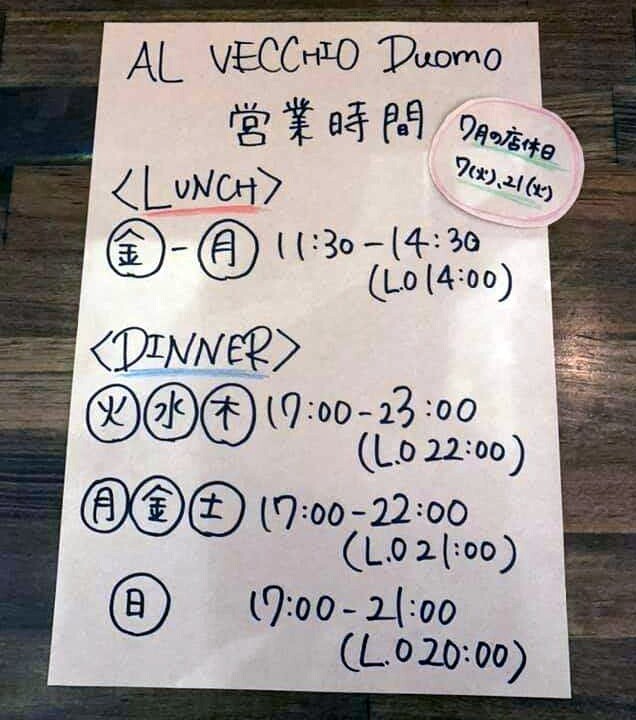 AL VECCHIO Duomo
営業時間
7月の店休日
7(火)、21(火)
<LUNCH>
金-月 11:30-14:30
(L.O 14:00)
<DINNER>
火水木 17:00-23:00
(L.O 22:00)
月金土 17:00-22:00
(L.O 21:00)
日 17:00-21:00
(L.O 20:00)